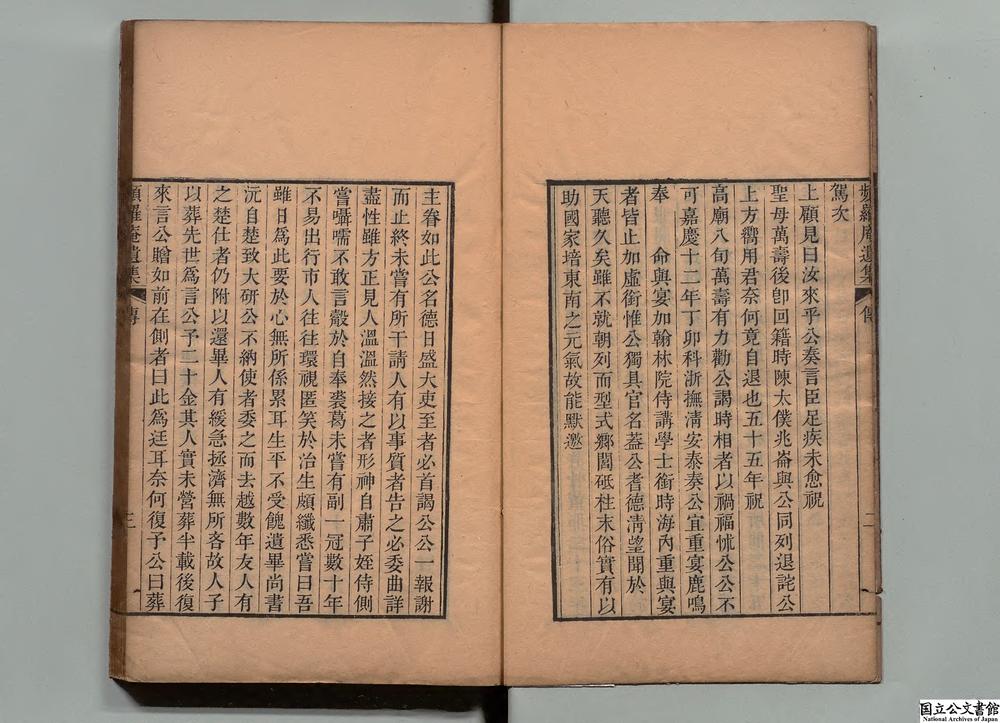 頻羅庵遺集 傳 二
駕次
上顧見曰汝來乎公奏言臣足疾未愈祝
聖母萬壽後卽回籍時陳太僕兆崙與公同列退詫公
上方嚮用君奈何竟自退也五十五年祝
高廟八旬萬壽有力勸公謁時相者以禍福怵公公不
可嘉慶十二年丁卯科浙撫淸安泰奏公宜重宴鹿鳴
奉 命與宴加翰林院侍講學士銜時海內重與宴
者皆止加虛銜惟公獨具官名蓋公耆德淸望聞於
天聽久矣雖不就朝列而型式鄉閭砥柱末俗實有以
助國家培東南之元氣故能默邀
主眷如此公名德日盛大吏至者必首謁公公一報謝
而止終未嘗有所干請人有以事質者告之必委曲詳
盡性雖方正見人溫溫然接之者形神自肅子姪侍側
嘗囁嚅不敢言縠於自奉裘葛未嘗有副一冠數十年
不易出行市人往往環視匿笑於治生頗纖悉嘗曰吾
雖日爲此要於心無所係累耳生平不受餽遺畢尚書
沅自楚致大硏公不納使者委之而去越數年友人有
之楚仕者仍附以還畢人有緩急拯濟無所吝故人子
以葬先世爲言公予二十金其人實未營葬半載後復
來言公贈如前在側者曰此爲迋耳奈何復予公曰葬
頻羅庵遺集 傳 三
国立公文書館
National Archives of Japan